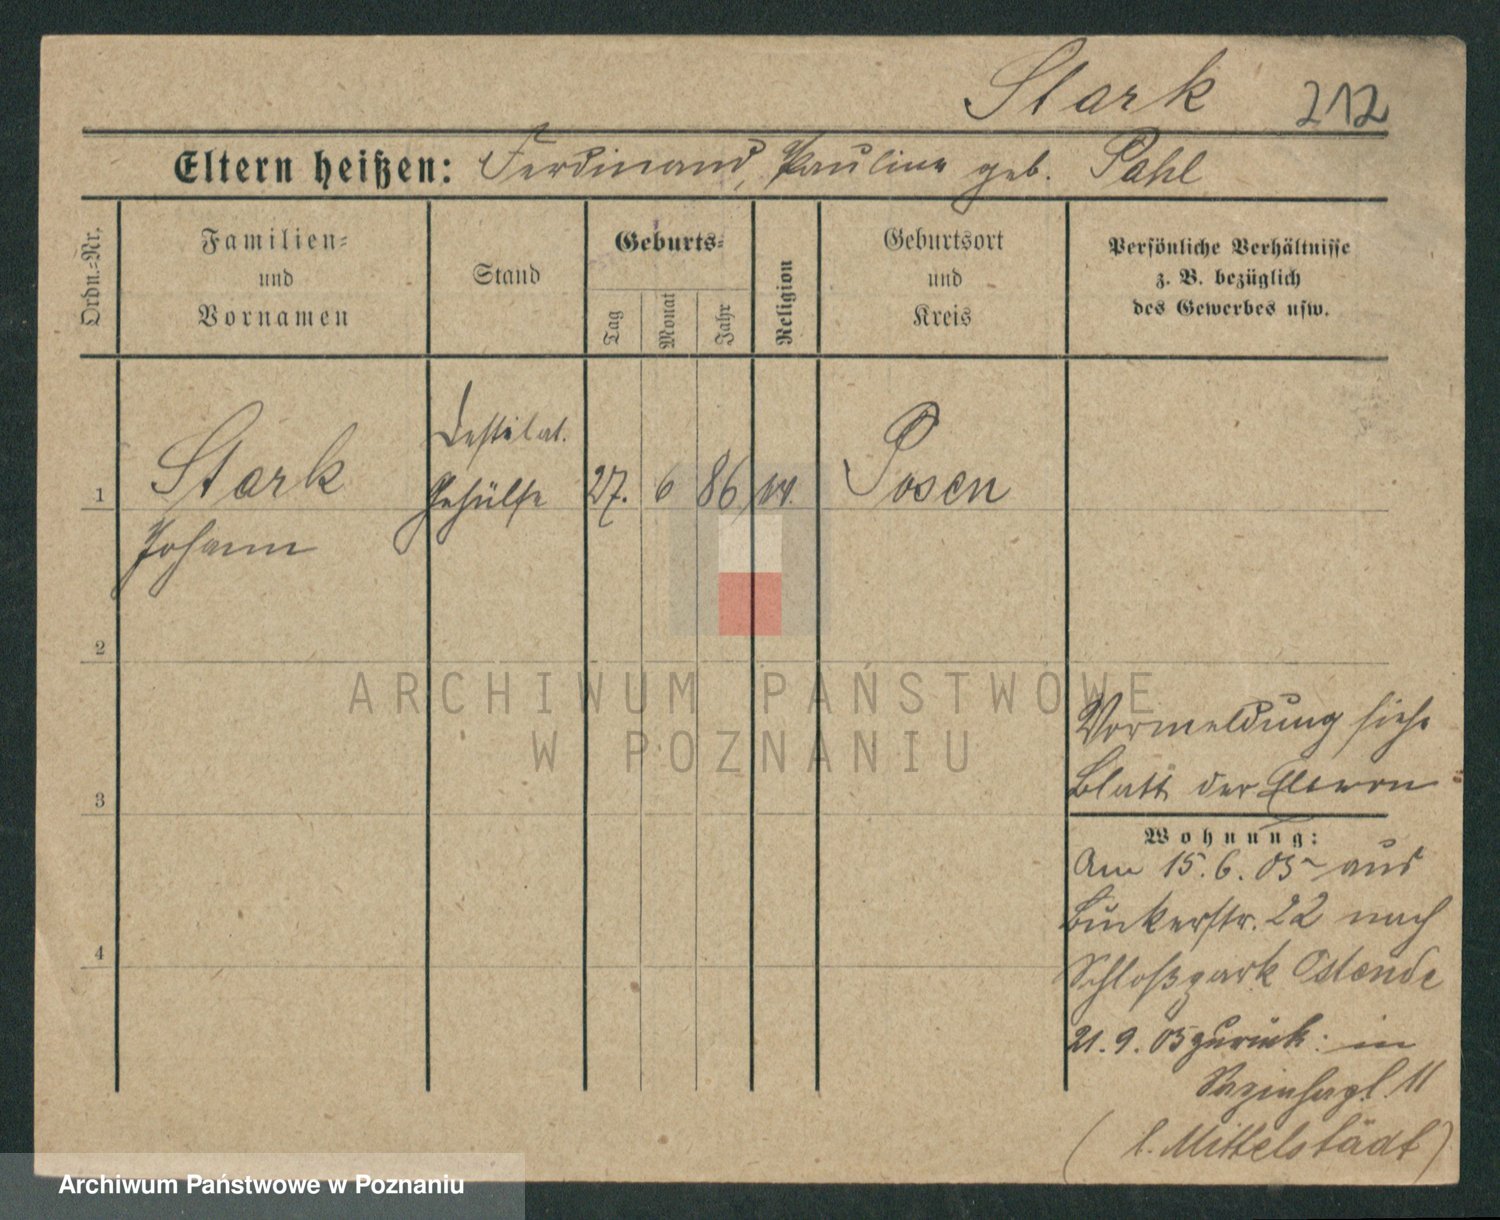 Stark 212
Eltern heißen: Ferdinand, Pauline geb. Pahl
Ordn.-Nr.
Familien-
und
Vornamen
Stand
Geburts-
Tag
Monat
Jahr
Religion
Geburtsort
und
Kreis
Persönliche Verhältnisse
z. B. bezüglich
des Gewerbes usw.
Destilat.
1 Stark Gehülfe 27. 6 86 Posen
Johann
2
3
4
Vormeldung siehe
Blatt der Eltern
Wohnung:
Am 15.6.05 aus
Bukerstr. 22 nach
Schloßpark Ostende
21.9.05 zurück: in
Sapiehapl. 11
(b. Mittelstädt)
ARCHIWUM PAŃSTWOWE
W POZNANIU
Archiwum Państwowe w Poznaniu